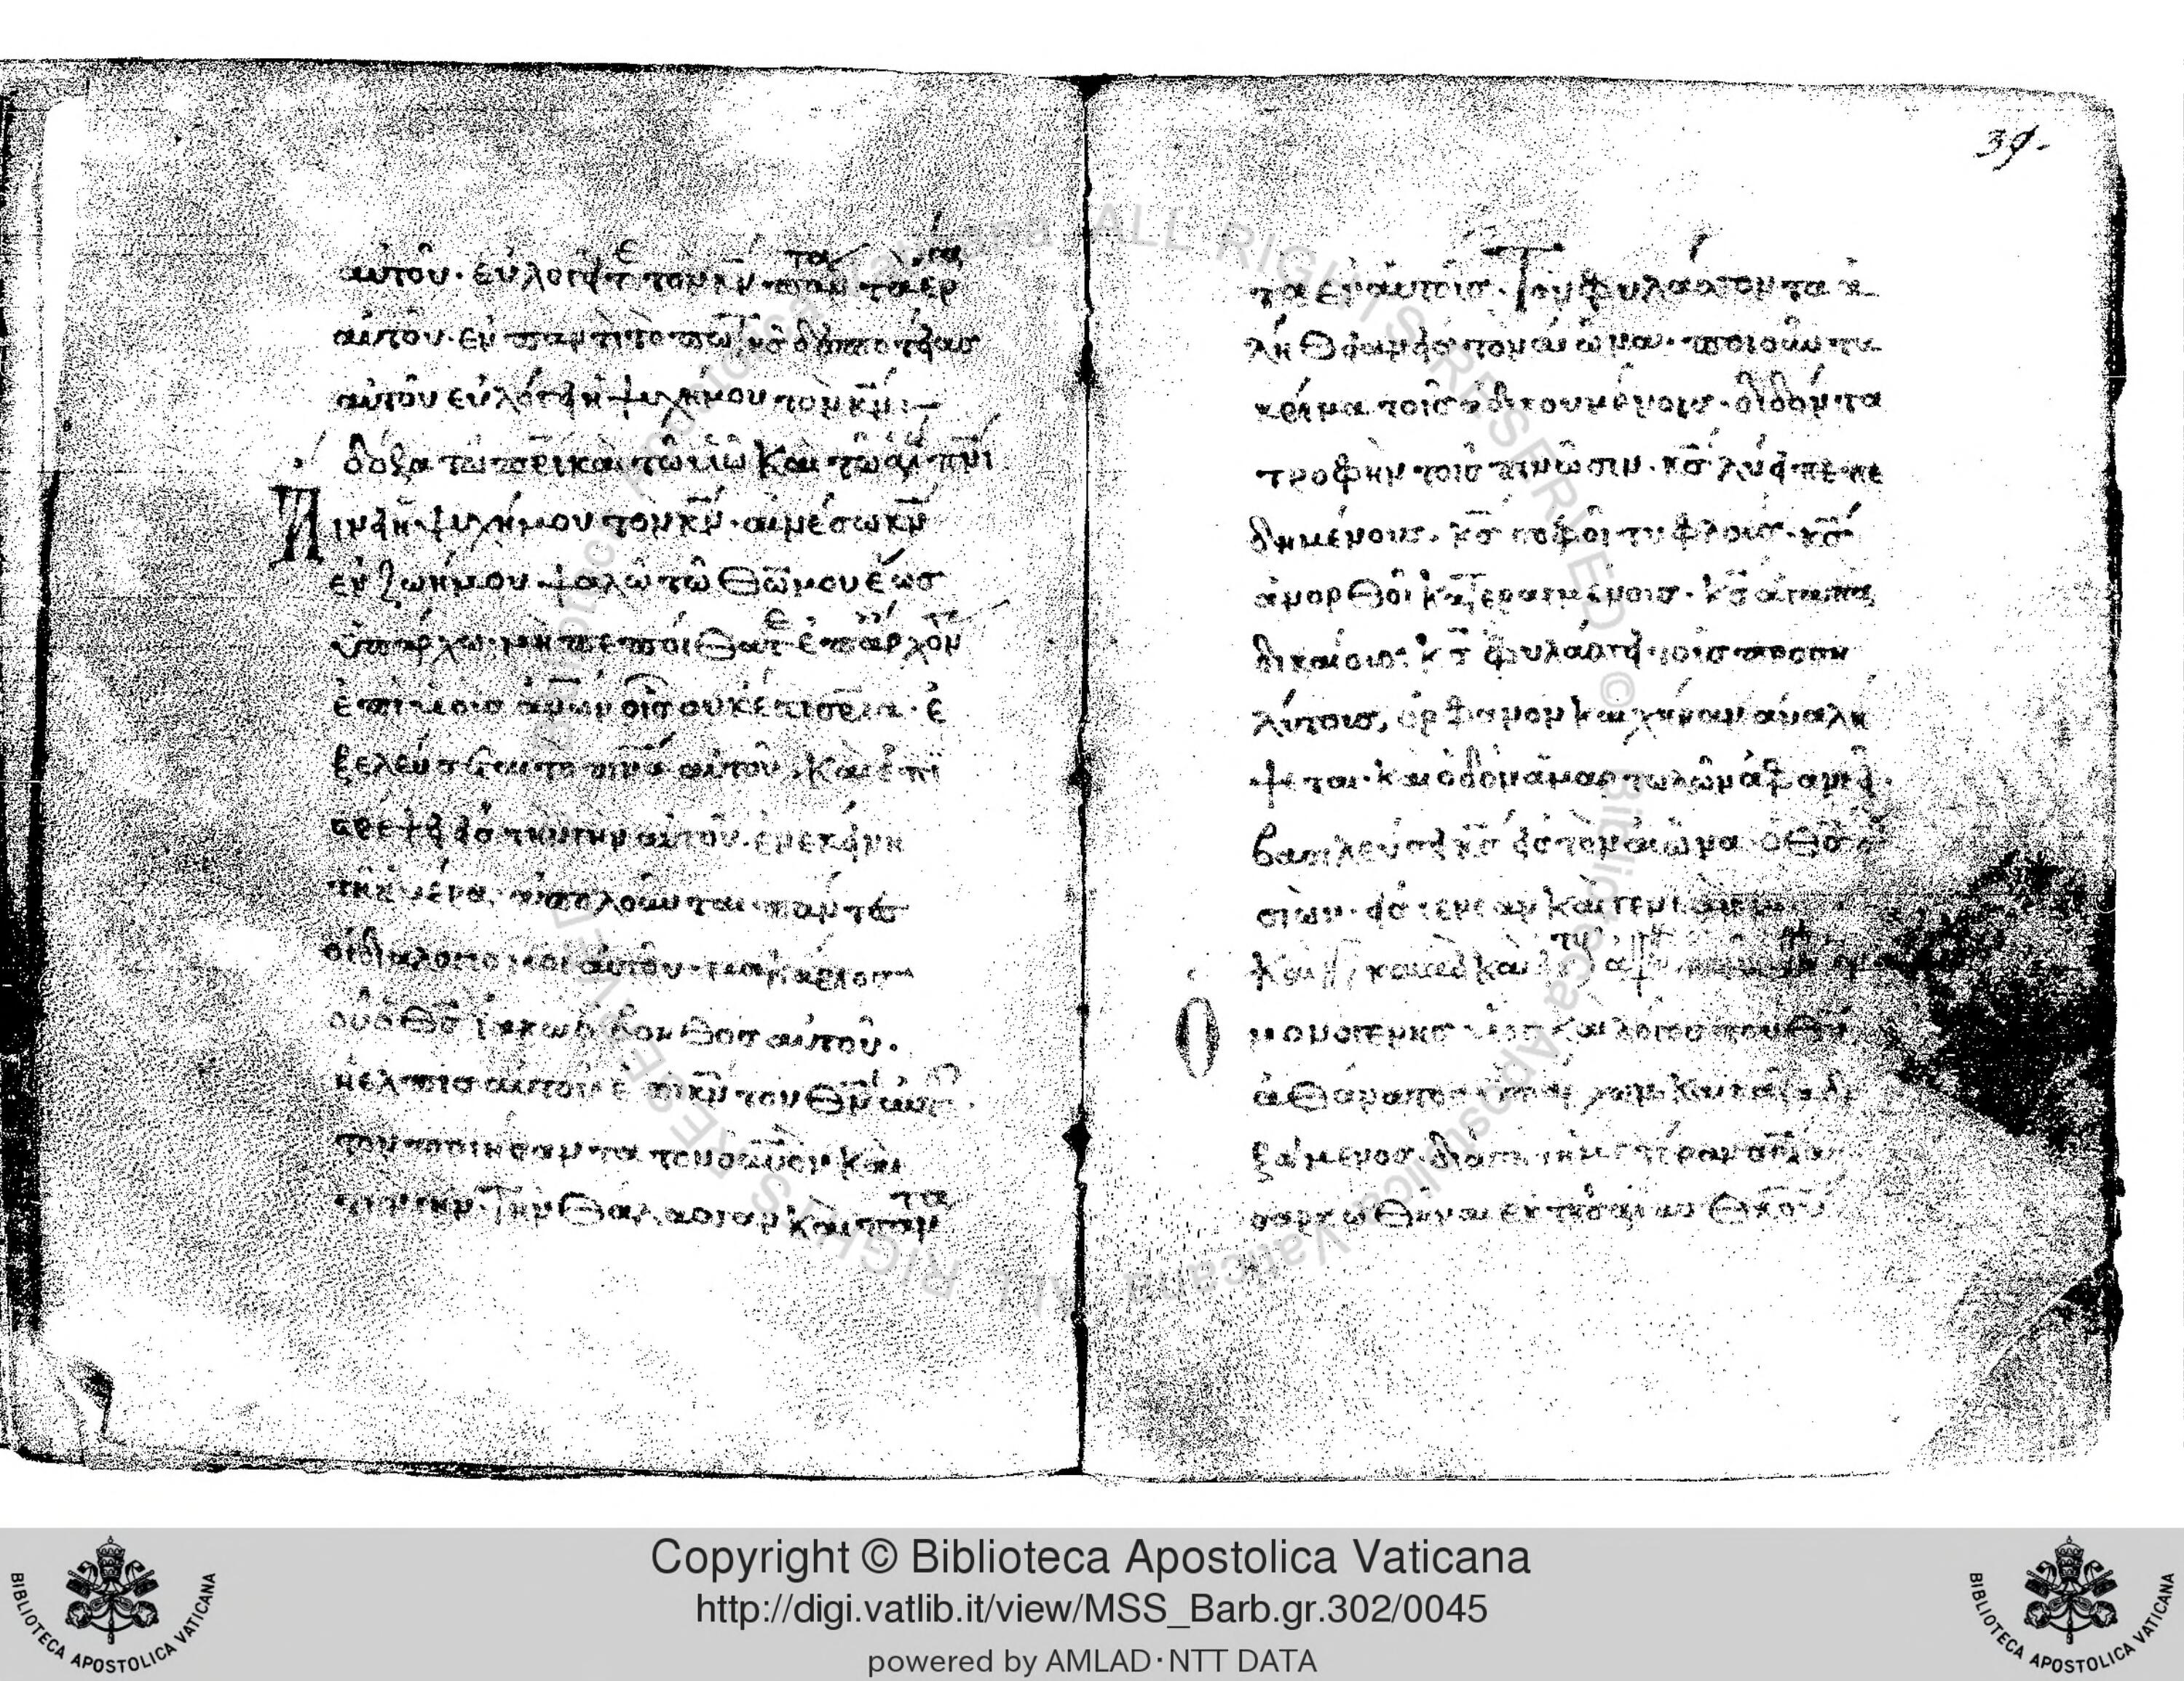 αὐτοῦ· εὐλογεῖτε τὸν κν̄ πάντα τὰ ἔργα
αὐτοῦ· ἐν παντὶ τόπω κς̄ δεσποτείας
αὐτοῦ εὐλόγει ἡ ψυχή μου τὸν κν̄:—
δόξα τῶ πρι καὶ τῶ υἱῶ καὶ τῶ ἁγί πνι
Αἴνει ἡ ψυχή μου τὸν κν̄· αἰνέσω κν̄
ἐν ζωῆ μου ψαλῶ τῶ θω̄ μου ἕως
ὑπάρχω· μὴ πεποίθατε ἐπ' ἄρχον
ἐπὶ υἱοὺς ἀνων οἷς οὐκ ἔστι σρία· ἐ
ξελεύσεται τὸ πνᾱ αὐτοῦ· καὶ ἐπι
στρέψει εἰς τὴν γῆν αὐτοῦ· ἐν ἐκείνη
τῆ ἡμέρα ἀπολοῦνται πάντες
οἱ διαλογισμοὶ αὐτοῦ· μακάριος
οὗ ὁ θς̄ ἰακὼβ βοηθὸς αὐτοῦ·
ἡ ἐλπὶς αὐτοῦ ἐπὶ κν̄ τὸν θν̄ αὐτοῦ·
τὸν ποιήσαντα τὸν οὐνον καὶ
τὴν γῆν· τὴν θάλασσαν καὶ πάντα
39.
τὰ ἐν αὐτοῖς· Τὸν φυλάσσοντα ἀ
λήθειαν εἰς τὸν αἰῶνα· ποιοῦντα
κρίμα τοῖς ἀδικουμένοις· διδόντα
τροφὴν τοῖς πεινῶσιν· κς̄ λύει πεπε
δημένους· κς̄ σοφοῖ τυφλούς· κς̄
ἀνορθοῖ κατερραγμένους· κς̄ ἀγαπᾶ
δικαίους· κς̄ φυλάσσει τοὺς προση
λύτους, ὀρφανὸν καὶ χήραν ἀναλή
ψεται· καὶ ὁδὸν ἁμαρτωλῶν ἀφανιεῖ·
βασιλεύσει κς̄ εἰς τὸν αἰῶνα· ὁ θς̄ σου
σιών· εἰς γενεὰν καὶ γενεάν
καὶ νῦν καὶ ἀεὶ καὶ
Ο μονογενὴς υἱὸς καὶ λόγος τοῦ θῡ
ἀθάνατος ὑπάρχων· καὶ καταδε
ξάμενος διὰ τὴν ἡμετέραν σρίαν
σαρκωθῆναι ἐκ τῆς ἁγίας θκου